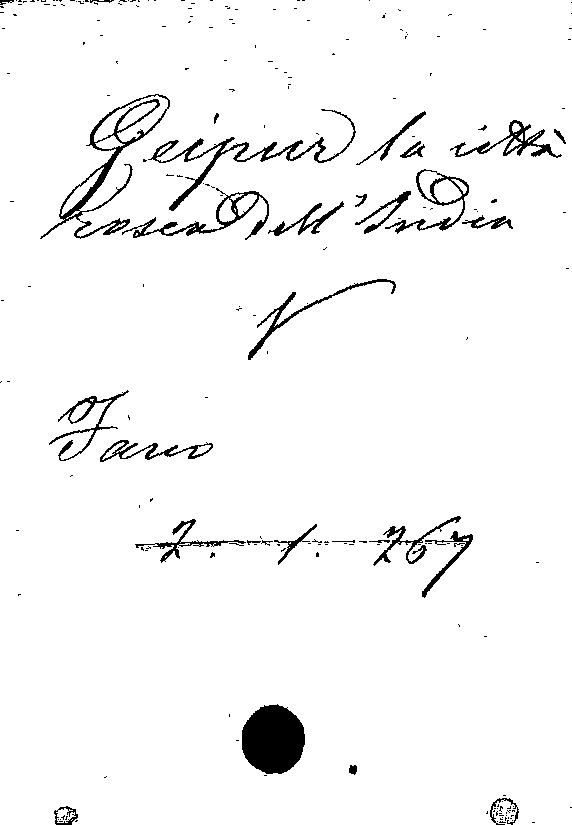 Geipur la città
rosea dell'India
V
Fano
2. 1. 267